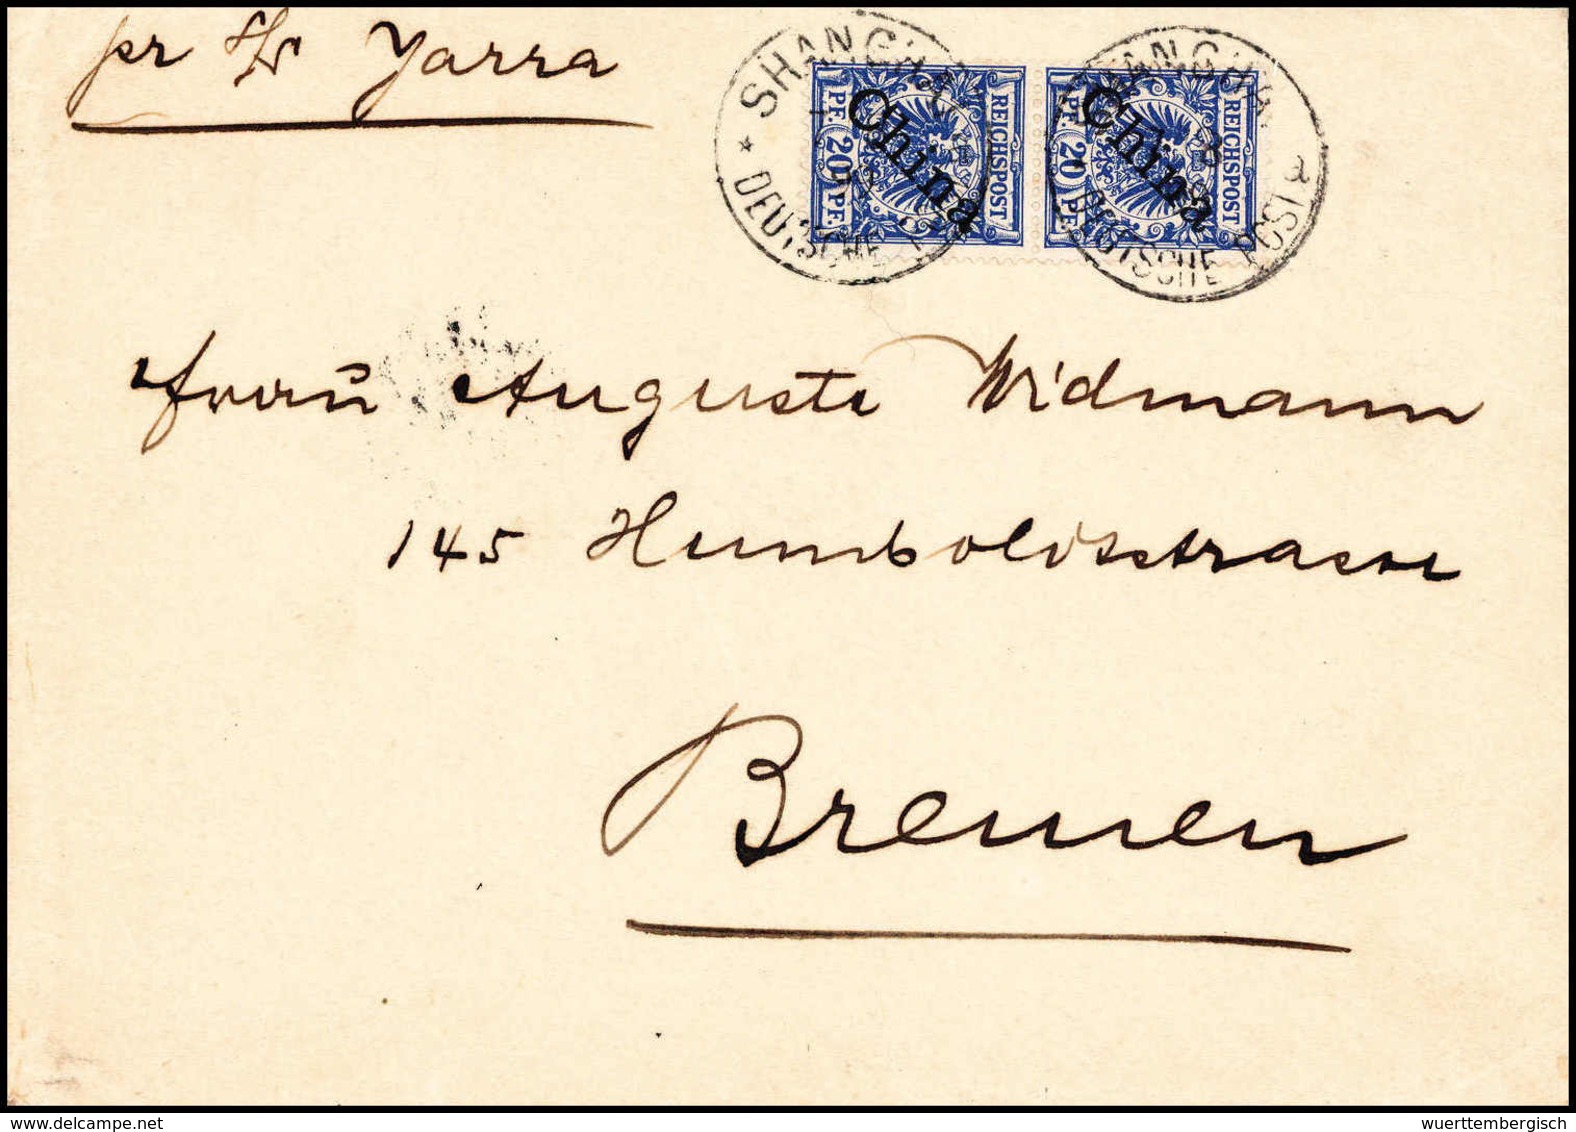 pr S/S Yarra
SHANGHAI
DEUTSCHE
REICHSPOST
20 PF. PF.
China
SHANGHAI
DEUTSCHE POST a
REICHSPOST
20 PF. PF.
China
Frau Auguste Widmann
145 Humboldtstrasse
Bremen
delcampe.net
wuerttembergisch